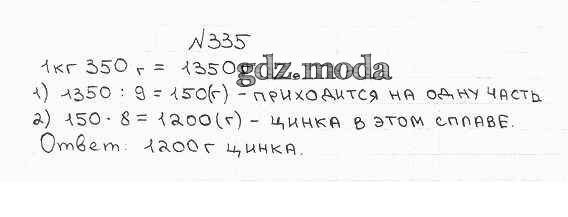 №335
1кг 350 г = 1350г
gdz.moda
1) 1350 : 9 = 150(г) - ПРИХОДИТСЯ НА ОДНУ ЧАСТЬ
2) 150 · 8 = 1200(г) - ЦИНКА В ЭТОМ СПЛАВЕ.
Ответ: 1200г ЦИНКА.